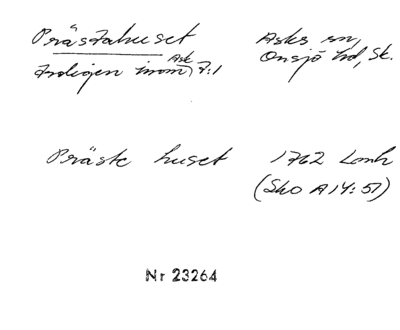 Prästahuset Asks sn,
Troligen inom Ask 7:1 Onsjö hd, Sk.
Präste huset 1762 Lanh
(Sko A14:51)
Nr 23264